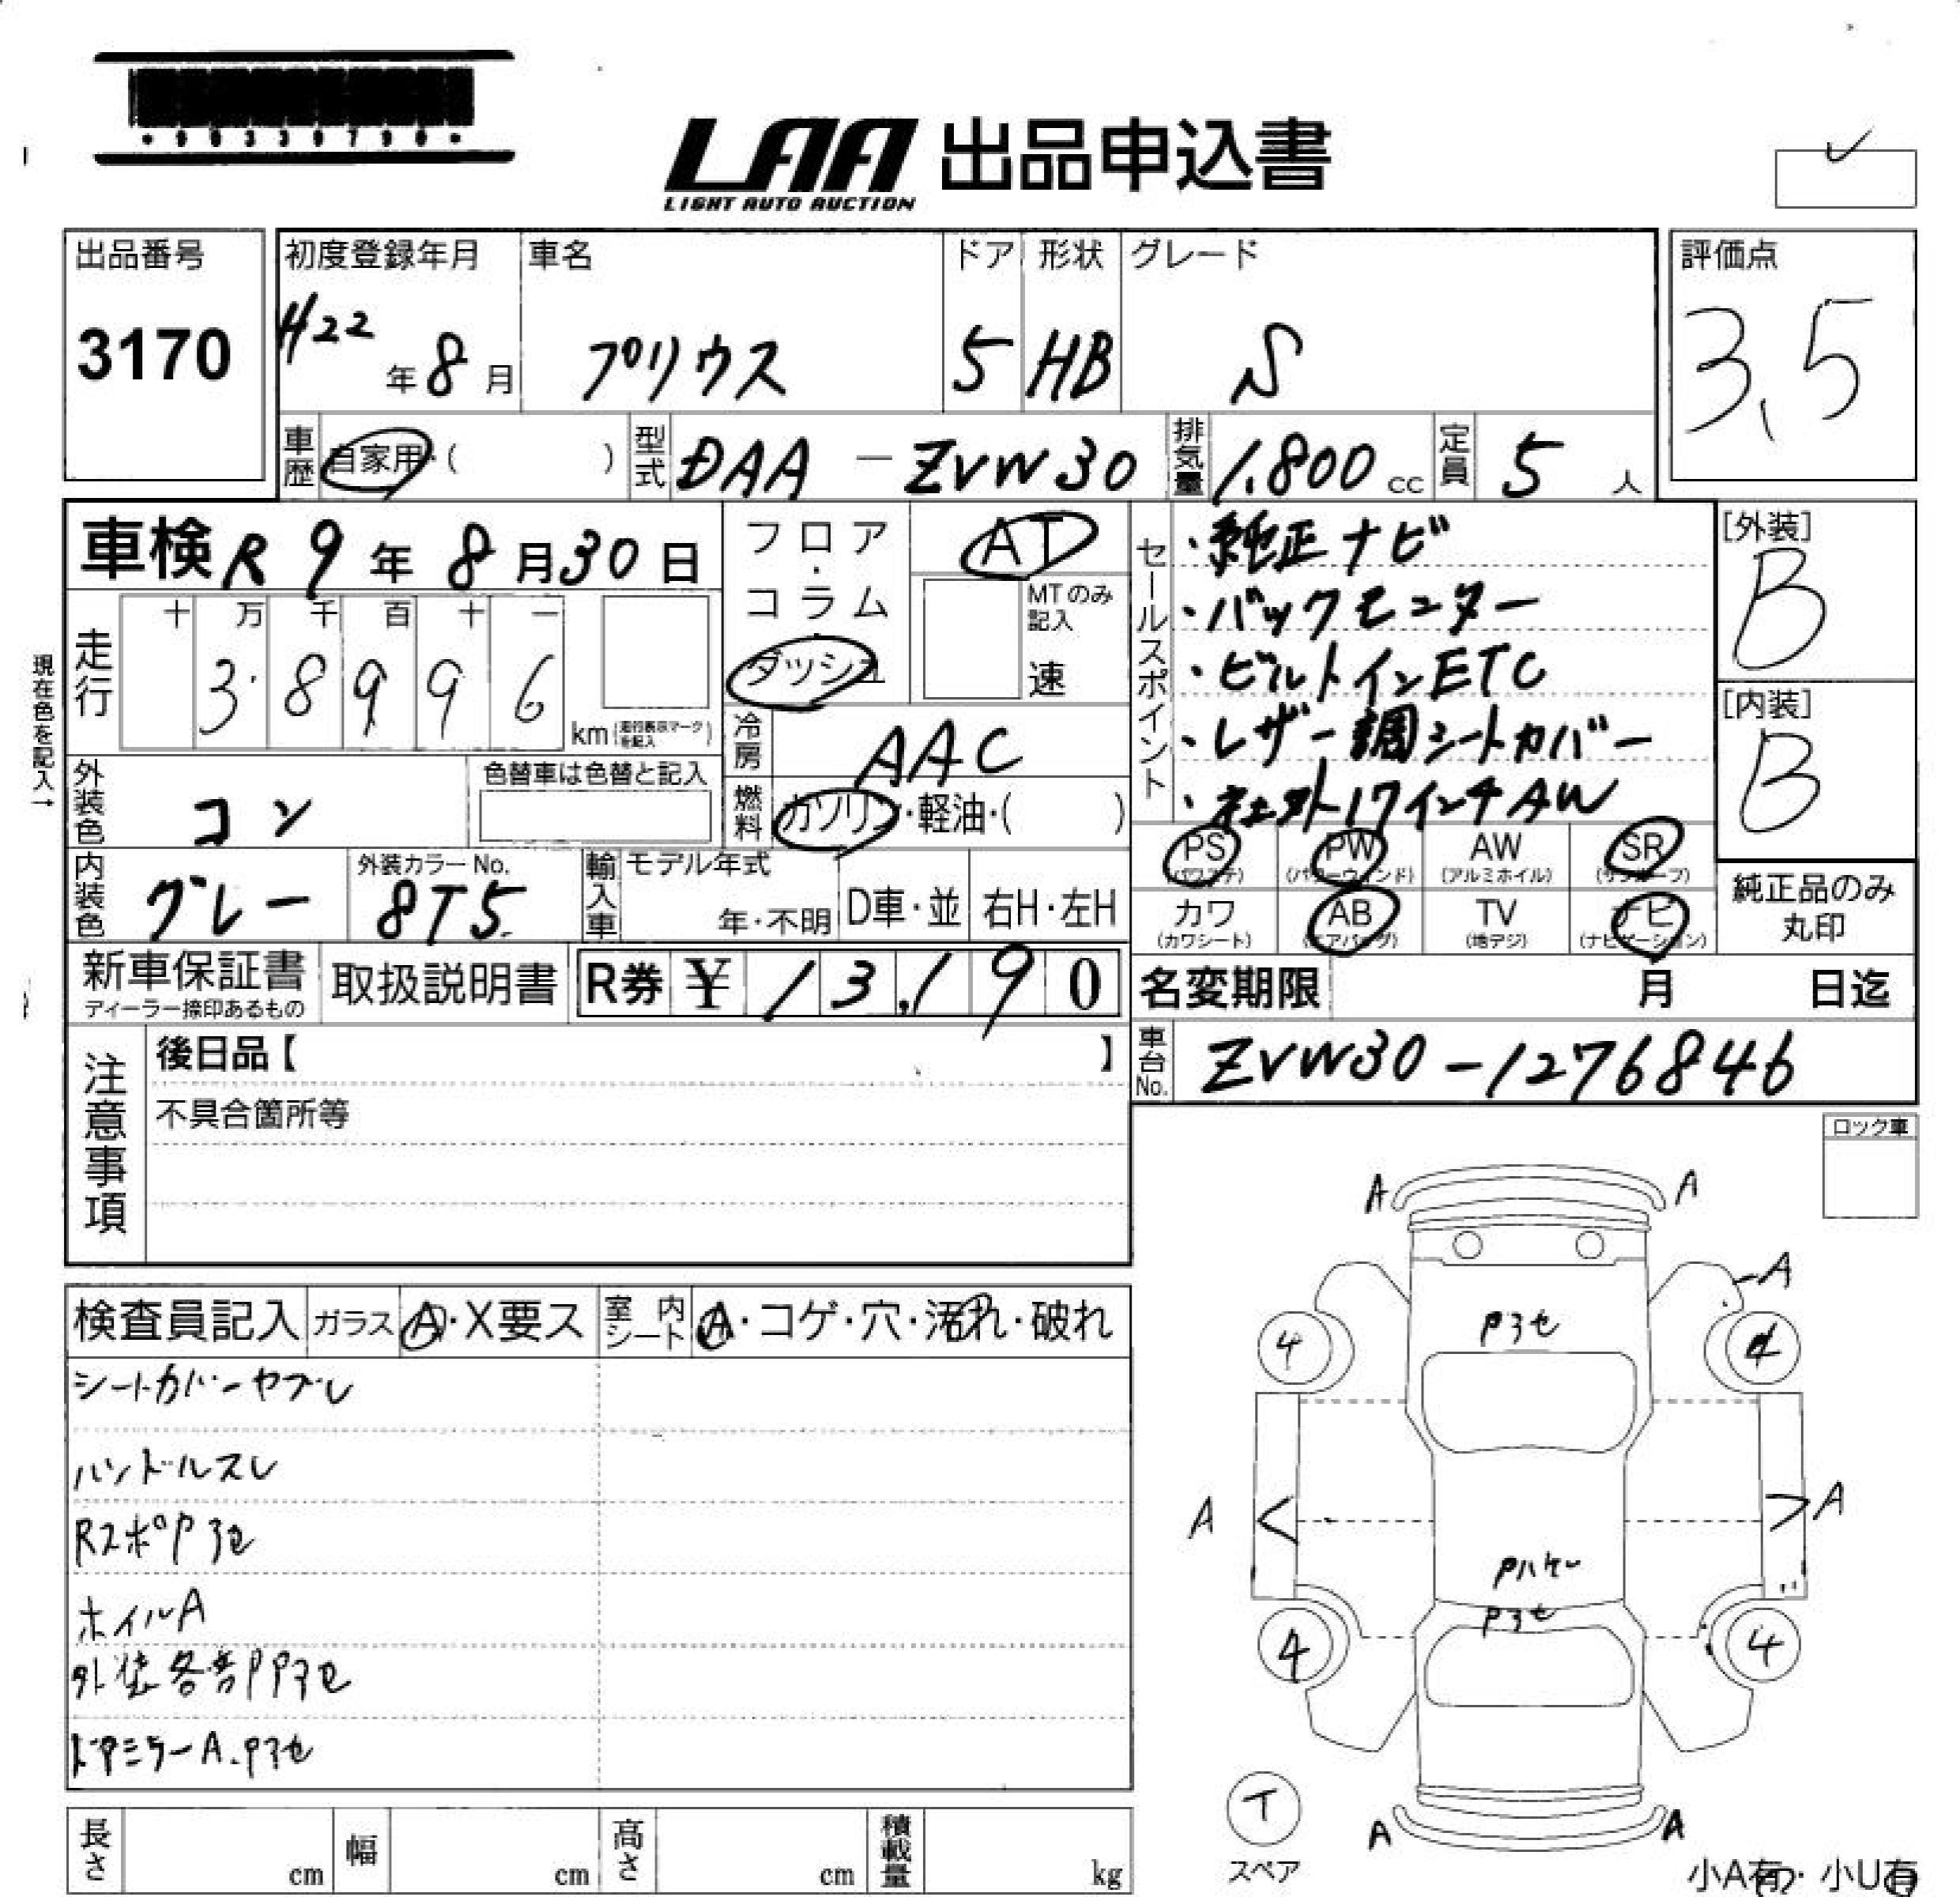 LAA 出品申込書
LIGHT AUTO AUCTION
出品番号
3170
初度登録年月
H22年8月
車名
プリウス
ドア
5
形状
HB
グレード
S
評価点
3.5
車歴 自家用・( )
型式 DAA - ZVW30
排気量 1.800 cc
定員 5 人
車検 R 9年 8月30日
走行
十 万 千 百 十 一
3 8 9 9 6
km (走行表示マークを記入)
現在色を記入→
フロア・コラム・ダッシュ
AT
MTのみ記入
速
冷房 AAC
燃料 ガソリン・軽油・( )
セールスポイント
・純正ナビ
・バックモニター
・ビルトインETC
・レザー調シートカバー
・社外17インチAW
[外装]
B
[内装]
B
外装色 コン
色替車は色替と記入
内装色 グレー
外装カラーNo.
8T5
輸入車
モデル年式
年・不明
D車・並
右H・左H
PS (パワステ)
PW (パワーウィンド)
AW (アルミホイル)
SR (サンルーフ)
カワ (カワシート)
AB (エアバッグ)
TV (地デジ)
ナビ (ナビゲーション)
純正品のみ丸印
新車保証書
ディーラー捺印あるもの
取扱説明書
R券 ¥ 13,190
名変期限 月 日迄
車台No. ZVW30-1276846
注意事項
後日品【 】
不具合箇所等
ロック車
検査員記入
ガラス A・X要ス
室内シート A・コゲ・穴・汚れ・破れ
シートカバーヤブレ
ハンドルスレ
RスポPヨセ
ホイルA
外装各部PPヨセ
ドアミラーA.Pヨセ
A A
A
Pヨセ
4 4
A A
Pハゲ
Pヨセ
4 4
T
スペア
A A
小A有・小U有
長さ cm
幅 cm
高さ cm
積載量 kg